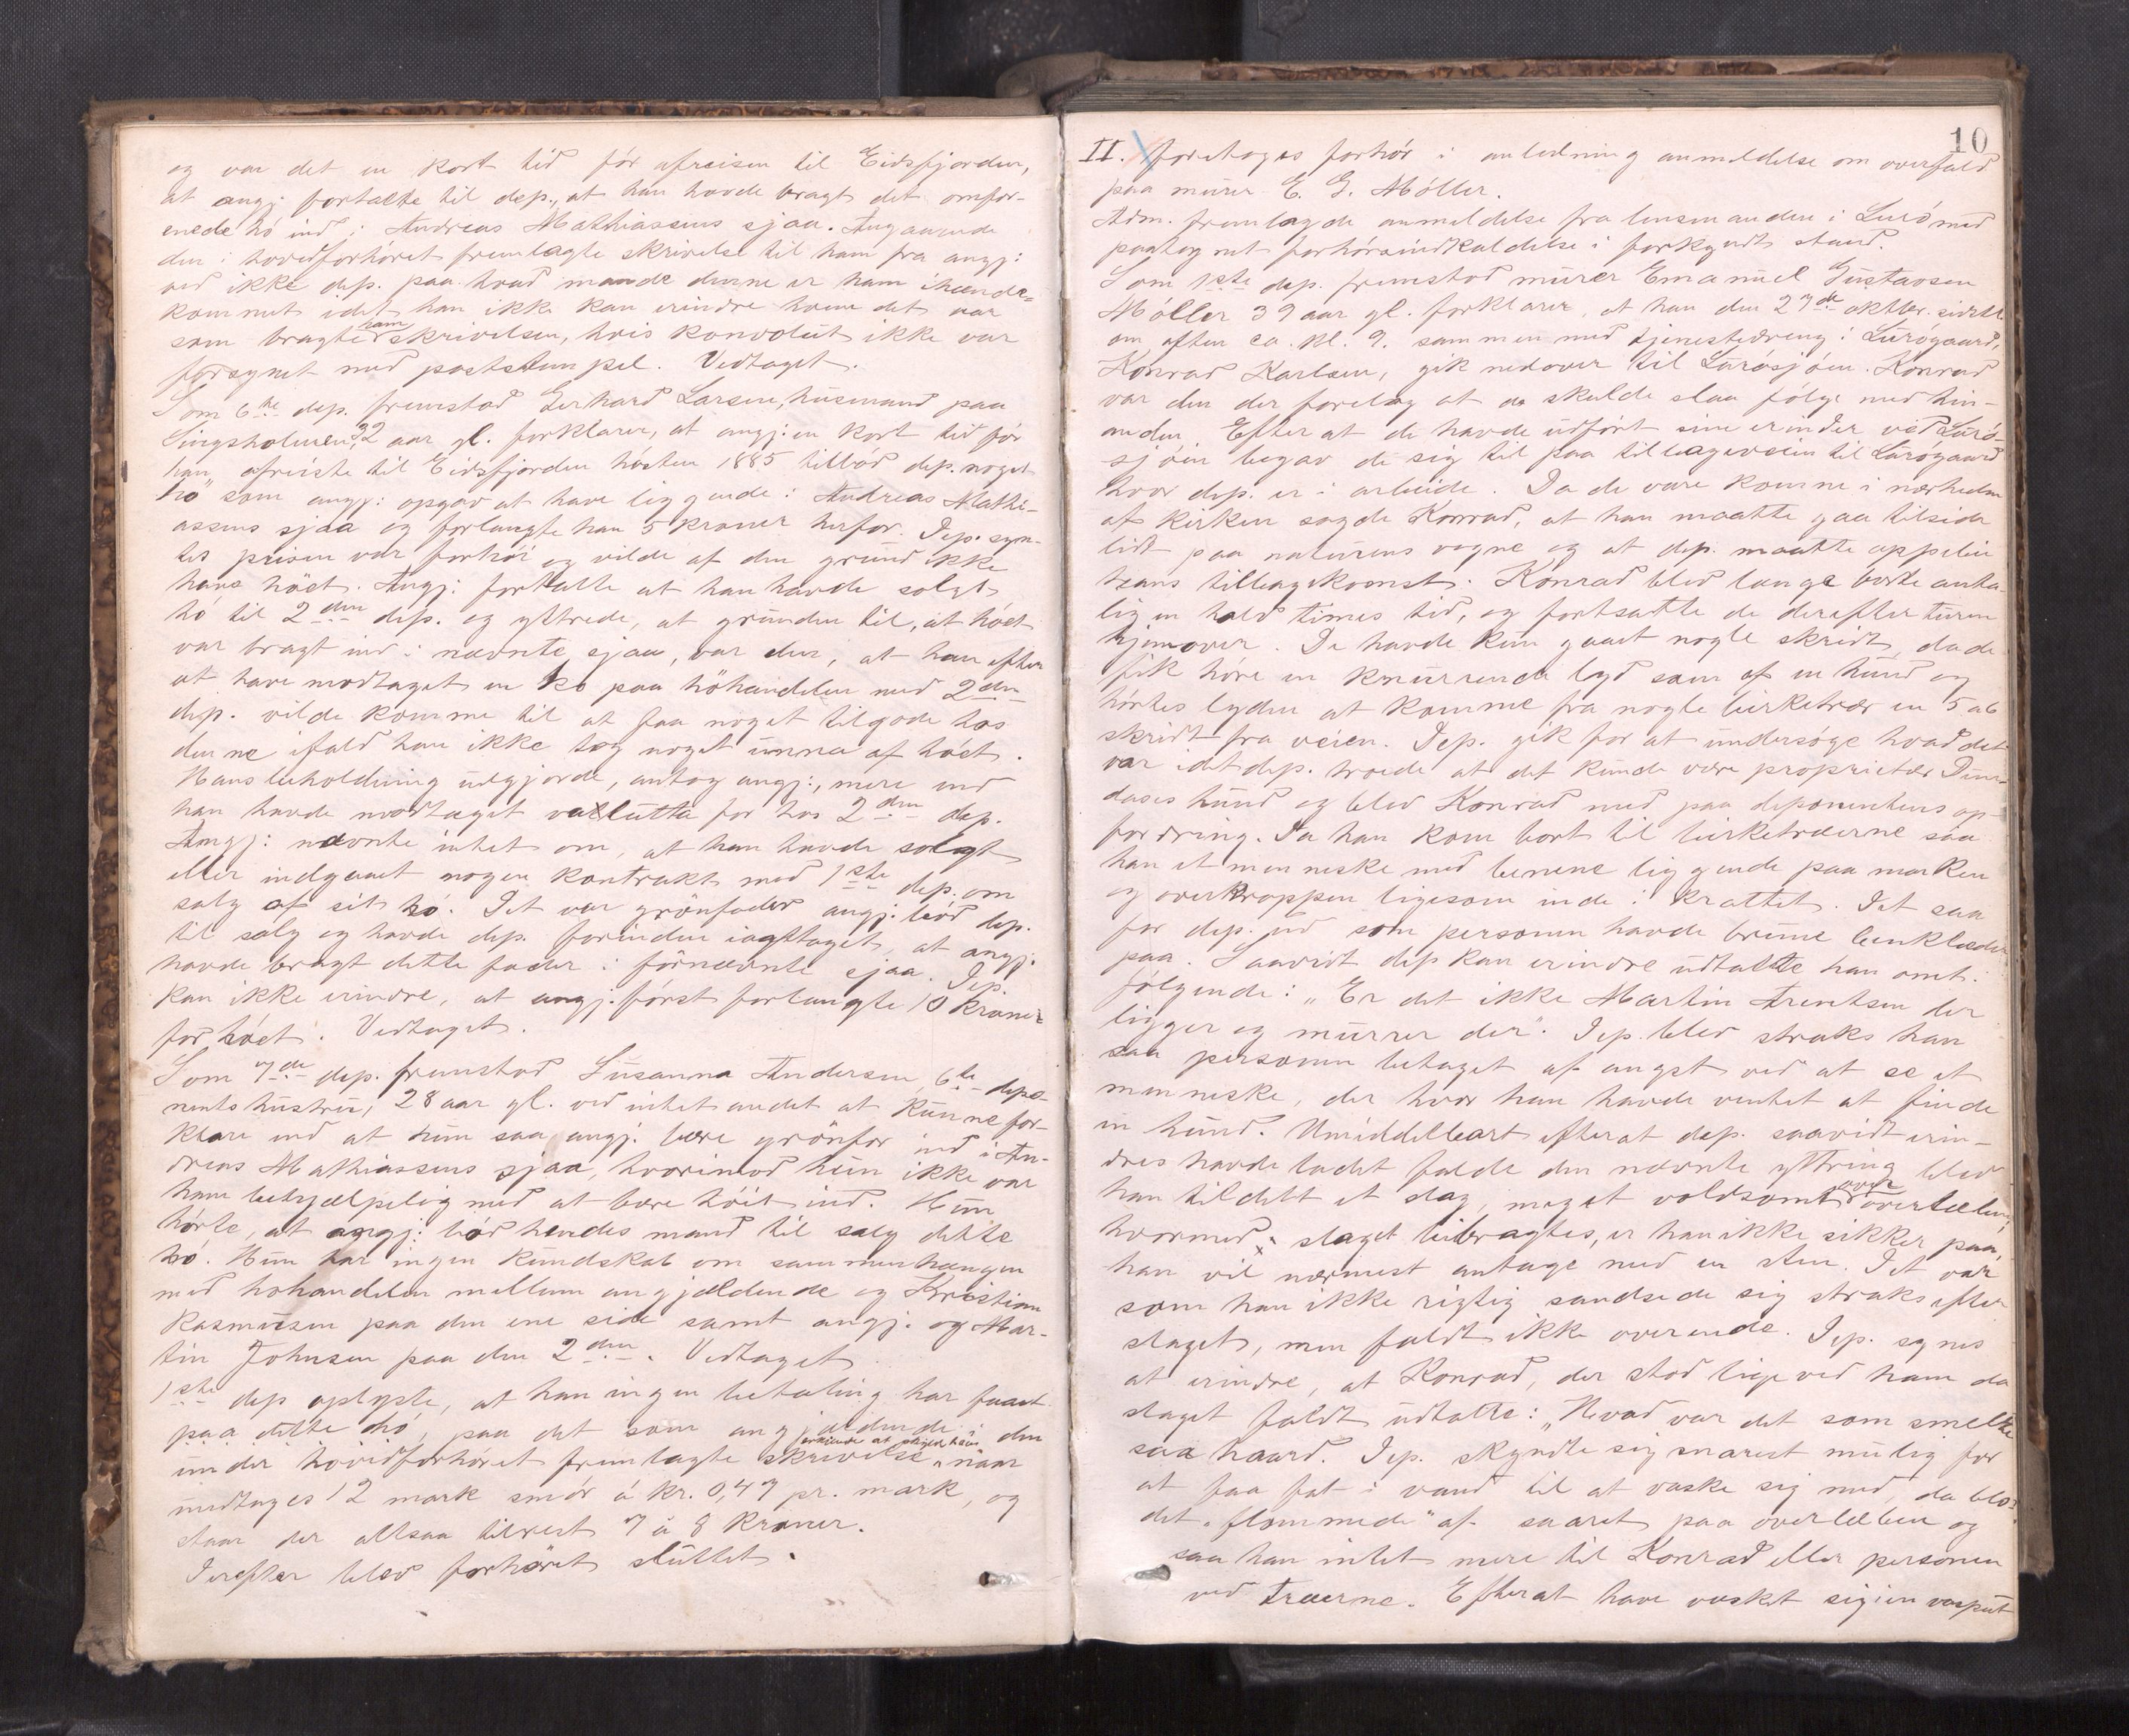 og var det en kort tid før afreisen til Eidsfjorden,
at angj. fortalte til dep., at han havde bragt det omfor-
enede hø ind i Andreas Mathiassens sjaa. Angaaende
den i hovedforhöret fremlagte skrivelse til ham fra angj:
ved ikke dep. paa hvad maade denne er ham ihænde-
kommet idet han ikke kan erindre hvem det var
som bragte ham skrivelsen, hvis konvolut ikke var
forsynet med poststempel. Vedtaget.
Som 6te dep. fremstod Gerhard Larsen, husmand paa
Lingsholmen, 32 aar gl. forklarer, at angj: en kort tid før
han afreiste til Eidsfjorden hösten 1885 tilböd dep. noget
"hö" som angj: opgav at have liggende i Andreas Mathi-
assens sjaa og forlangte han 5 kroner herfor. Dep. syn-
tes prisen var forhöi og vilde af den grund ikke
have höet. Angj: fortalte at han havde solgt
hö til 2den dep. og yttrede, at grunden til, at höet
var bragt ind i nævnte sjaa, var den, at han efter
at have modtaget en ko paa höhandelen med 2den
dep. vilde komme til at faa noget tilgode hos
denne ifald han ikke tog noget unna af höet.
Hans beholdning udgjorde, antog angj:, mere end
han havde modtaget vallutta for hos 2den dep.
Angj: nævnte intet om, at han havde solgt
eller indgaaet nogen kontrakt med 1ste dep. om
salg af sit hö. Det var grönfoder angj. böd dep.
til salg og havde dep. forinden iagttaget, at angj.
havde bragt dette foder i förnævnte sjaa. Dep.
kan ikke erindre, at angj. först forlangte 10 kroner
for höet. Vedtaget.
Som 7de dep. fremstod Susanna Andersen, 6te depo-
nents hustru, 28 aar gl. ved intet andet at kunne for-
klare end at hun saa angj. bære grönfor ind i An-
dreas Mathiassens sjaa, hvorimod hun ikke var
ham behjælpelig med at bære höit ind. Hun
hörte, at angj: böd hendes mand til salg dette
hö. Hun har ingen kundskab om sammenhængen
med höhandelen mellem angjældende og Kristian
Rasmusen paa den ene side samt angj. og Mar-
tin Johnsen paa den 2den. Vedtaget.
1ste dep oplyste, at han ingen betaling har faaet
paa dette hö, paa det som angjældende i den
under hovedforhöret fremlagte skrivelse naar
undtages 12 mark smör á kr. 0,47 pr. mark, og
staar der altsaa tilrest 7 à 8 kroner.
Derefter blev forhöret sluttet.
10
II. foretoges forhör i anledning anmeldelse om overfald
paa murer E. G. Möller.
Adm. fremlagde anmeldelse fra lensmanden i Lurö med
paategnet forhörsindkaldelse i forkyndt stand.
Som 1ste dep. fremstod murer Emanuel Gustavsen
Möller 39 aar gl. forklarer, at han den 27de oktbr. sidstl
om aften ca. kl. 9. sammen med tjenestedreng i Lurögaard,
Konrad Karlsen, gik nedover til Lurösjöen. Konrad
var den der foreslog at de skulde slaa fölge med hin-
anden. Efter at de havde udfört sine erinder ved Lurö-
sjöen begav de sig til paa tilbageveien til Lurögaard
hvor dep. er i arbeide. Da de vare komne i nærheden
af kirken sagde Konrad, at han maatte gaa tilside
lidt paa naturens vegne og at dep. maatte oppebie
hans tilbagekomst. Konrad blev længe borte anta-
lig en halv times tid, og fortsatte de derefter turen
hjemover. De havde kun gaaet nogle skridt, da de
fik höre en knurrende lyd som af en hund og
hörtes lyden at komme fra nogle birketrær en 5 a 6
skridt fra veien. Dep. gik for at undersöge hvad det
var idet dep. troede at det kunde være proprietær Dun-
dases hund og blev Konrad med paa deponentens op-
fordring. Da han kom bort til birketræerne saa
han et menneske med benene liggende paa marken
og overkroppen ligesom inde i krattet. Det saa
for dep. ud som personen havde brune benklæder
paa. Saavidt dep kan erindre udtalte han omt.
fölgende: „Er det ikke Martin Arentsen der
ligger og murrer der". Dep. blev straks han
saa personen betaget af angst ved at se et
menneske, der hvor han havde ventet at finde
en hund. Umiddelbart efterat dep. saavidt erin-
dres havde ladet falde den nævnte yttring blev
han tildelt et slag, meget voldsomt over overlæben,
hvormed slaget bibragtes, er han ikke sikker paa,
han vil nærmest antage med en sten. Det var
som han ikke rigtig sandsede sig straks efter
slaget, men faldt ikke overende. Dep. synes
at erindre, at Konrad, der stod lige ved ham da
slaget faldt udtalte: „Hvad var det som smelte
saa haard. Dep. skyndte sig snarest mulig for
at faa fat i vand til at vaske sig med, da blo-
det „flommede" af saaret paa overlæben og
saa han intet mere til Konrad eller personen
ved træerne. Efterat have vasket sig i en vasput